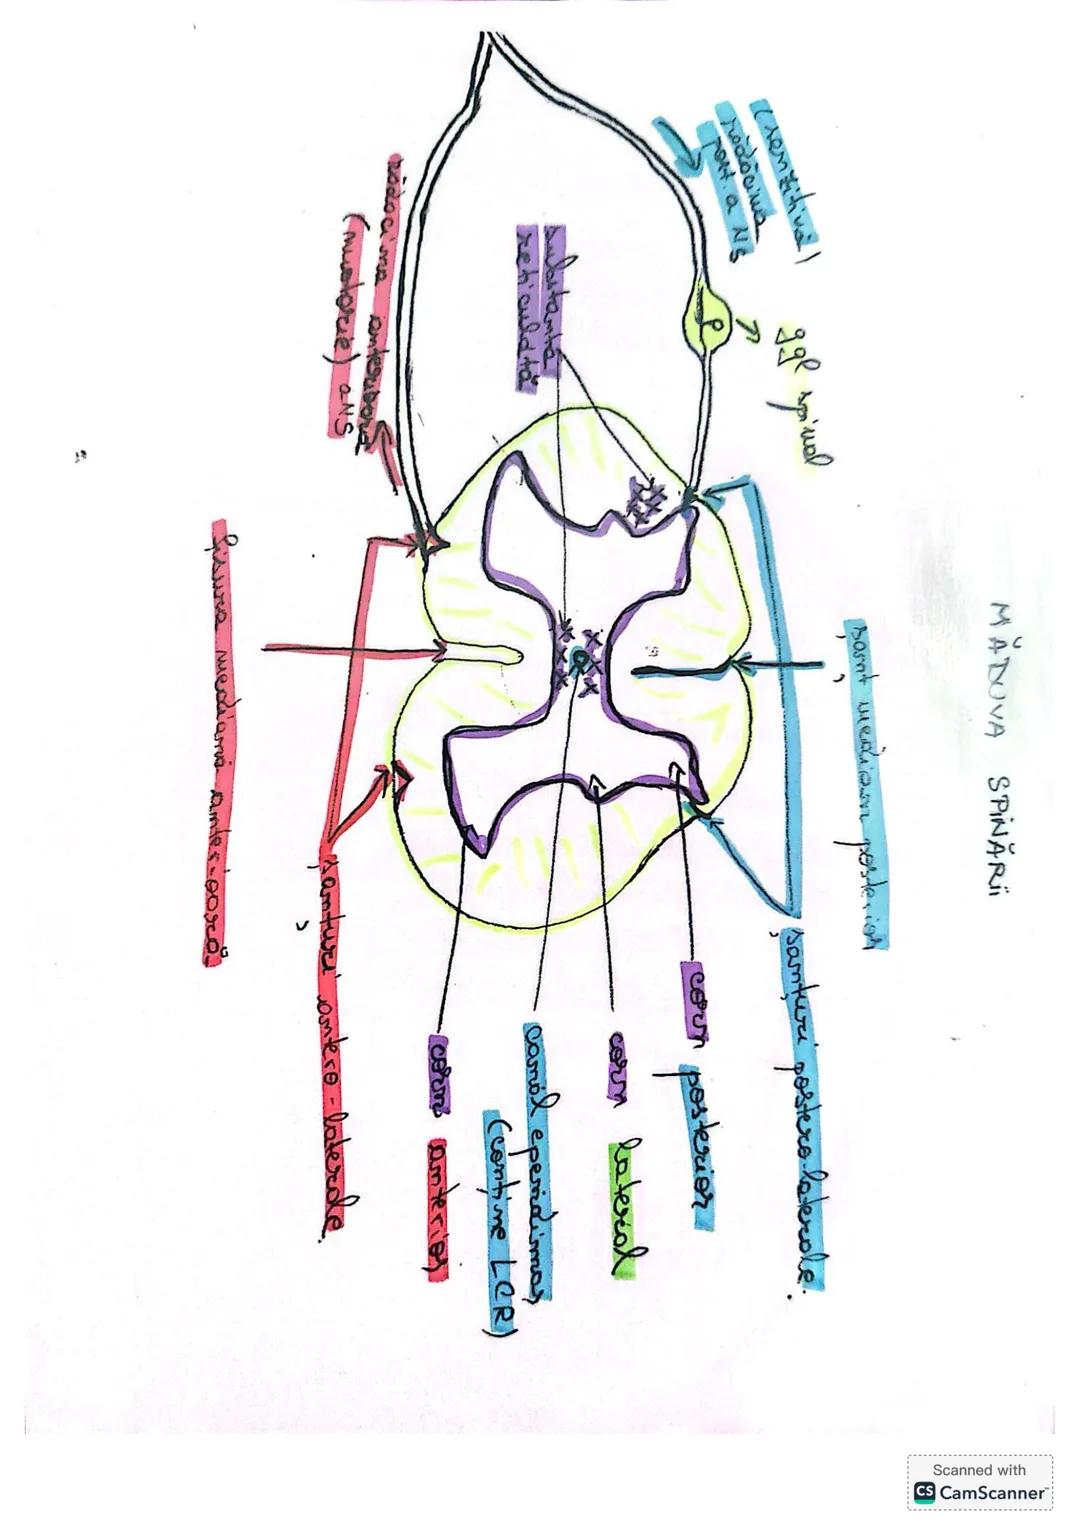 MĂDUVA SPINĂRII
șanț median posterior
(senzitivă)
rădăcina
post. a NS
ggl spinal
șanțuri postero-laterale.
substanța
reticulată
corn posterior
corn lateral
canal ependimar
(conține LCR)
corn anterior
rădăcina anterioară
(motorie) a NS
șanțuri antero-laterale.
fisura mediană anterioară
Scanned with
CS CamScanner